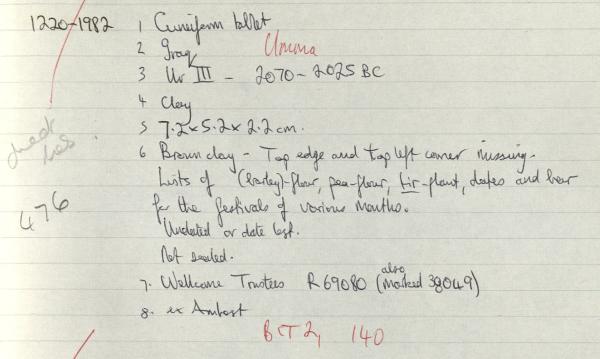 1220-1982 1 Cuneiform tablet
2 Iraq Umma
3 Ur III - 2070-2025 BC
4 Clay
5 7.2 x 5.2 x 2.2 cm.
6 Brown clay - Top edge and top left corner missing.
Lists of (barley)-flour, pea-flour, tir-plant, dates and beer
for the festivals of various months.
Undated or date lost.
Not sealed.
476
7. Wellcome Trustees R69080 (also marked 38049)
8. ex Amherst
BCT 2, 140